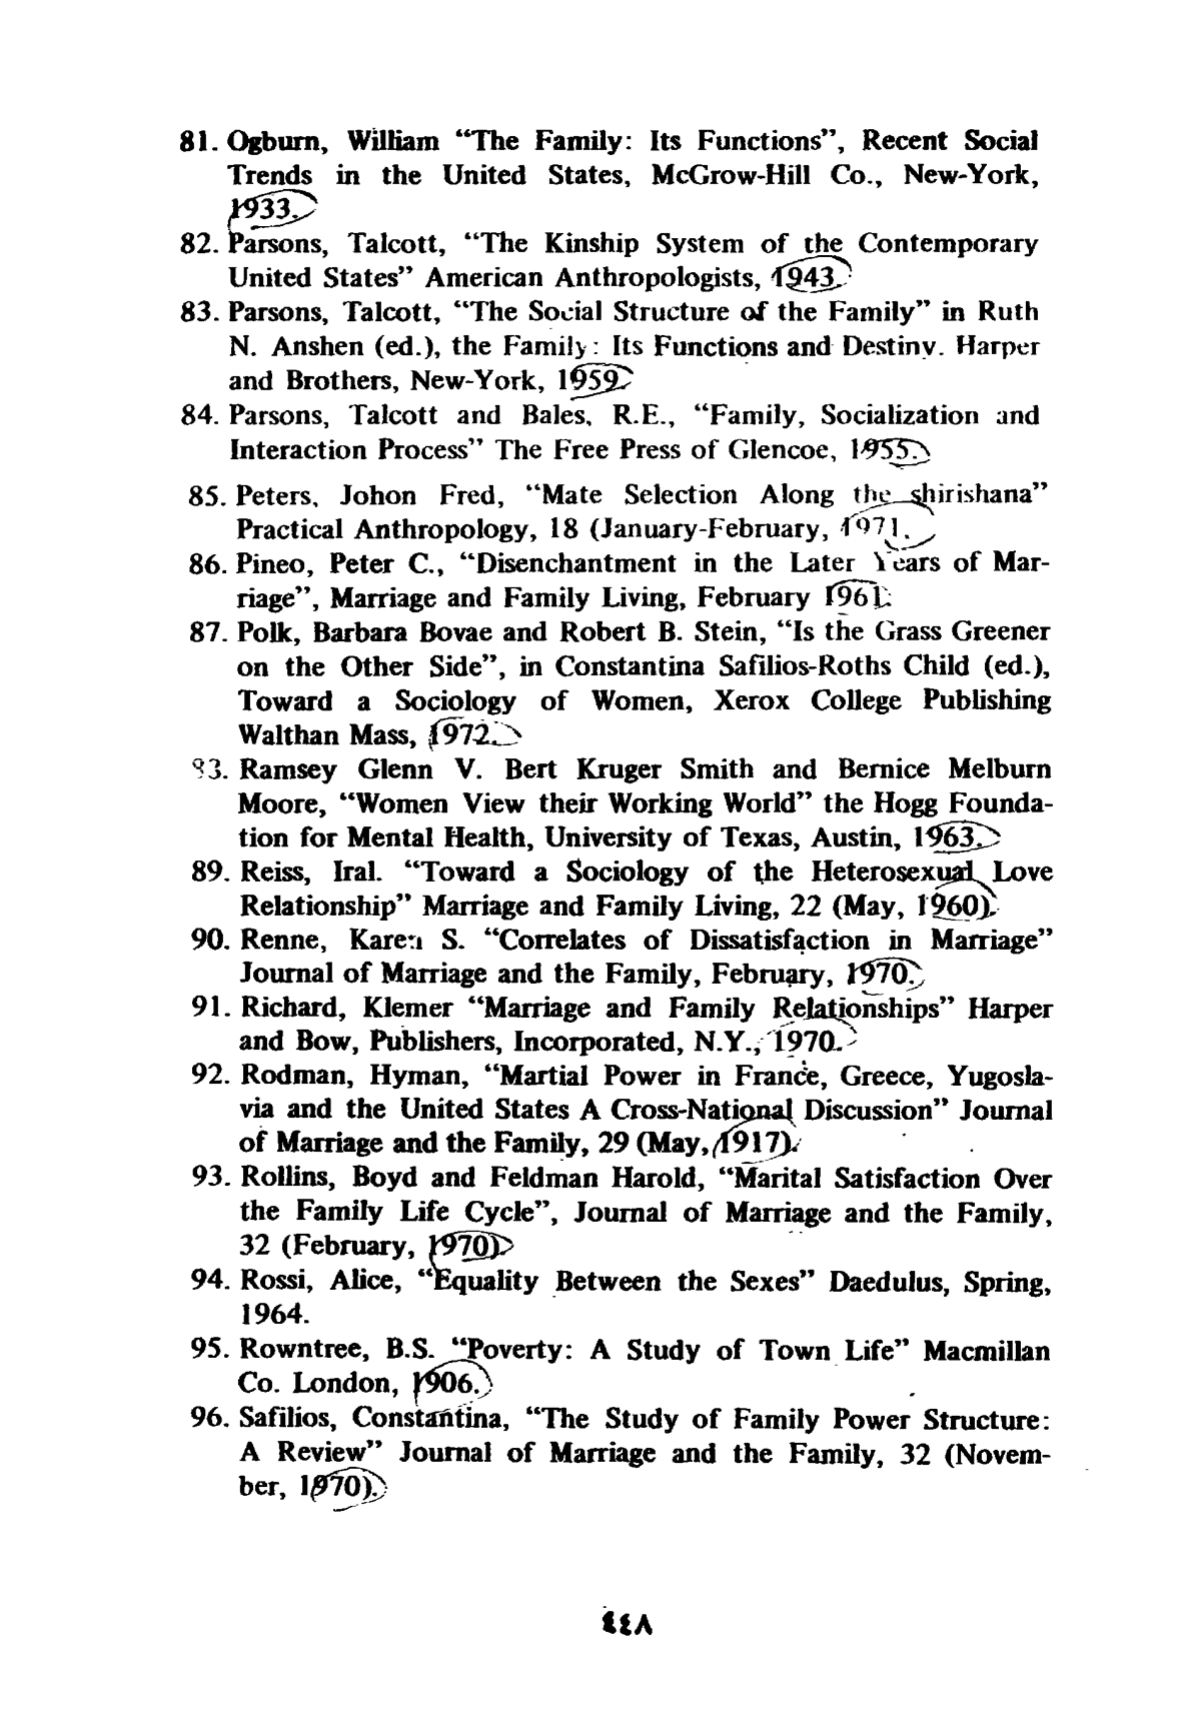 81. Ogburn, William “The Family: Its Functions”, Recent Social
Trends in the United States, McGrow-Hill Co., New-York,
1933.
82. Parsons, Talcott, “The Kinship System of the Contemporary
United States” American Anthropologists, 1943.
83. Parsons, Talcott, “The Social Structure of the Family” in Ruth
N. Anshen (ed.), the Family: Its Functions and Destiny. Harper
and Brothers, New-York, 1959
84. Parsons, Talcott and Bales, R.E., “Family, Socialization and
Interaction Process” The Free Press of Glencoe, 1955.
85. Peters, Johon Fred, “Mate Selection Along the shirishana”
Practical Anthropology, 18 (January-February, 1971.
86. Pineo, Peter C., “Disenchantment in the Later Years of Mar-
riage”, Marriage and Family Living, February 1961.
87. Polk, Barbara Bovae and Robert B. Stein, “Is the Grass Greener
on the Other Side”, in Constantina Safilios-Roths Child (ed.),
Toward a Sociology of Women, Xerox College Publishing
Walthan Mass, 1972.
83. Ramsey Glenn V. Bert Kruger Smith and Bernice Melburn
Moore, “Women View their Working World” the Hogg Founda-
tion for Mental Health, University of Texas, Austin, 1963.
89. Reiss, Iral. “Toward a Sociology of the Heterosexual Love
Relationship” Marriage and Family Living, 22 (May, 1960).
90. Renne, Karen S. “Correlates of Dissatisfaction in Marriage”
Journal of Marriage and the Family, February, 1970.
91. Richard, Klemer “Marriage and Family Relationships” Harper
and Bow, Publishers, Incorporated, N.Y., 1970.
92. Rodman, Hyman, “Martial Power in France, Greece, Yugosla-
via and the United States A Cross-National Discussion” Journal
of Marriage and the Family, 29 (May, 1917).
93. Rollins, Boyd and Feldman Harold, “Marital Satisfaction Over
the Family Life Cycle”, Journal of Marriage and the Family,
32 (February, 1970)
94. Rossi, Alice, “Equality Between the Sexes” Daedulus, Spring,
1964.
95. Rowntree, B.S. “Poverty: A Study of Town Life” Macmillan
Co. London, 1906.
96. Safilios, Constantina, “The Study of Family Power Structure:
A Review” Journal of Marriage and the Family, 32 (Novem-
ber, 1970).
٤٤٨